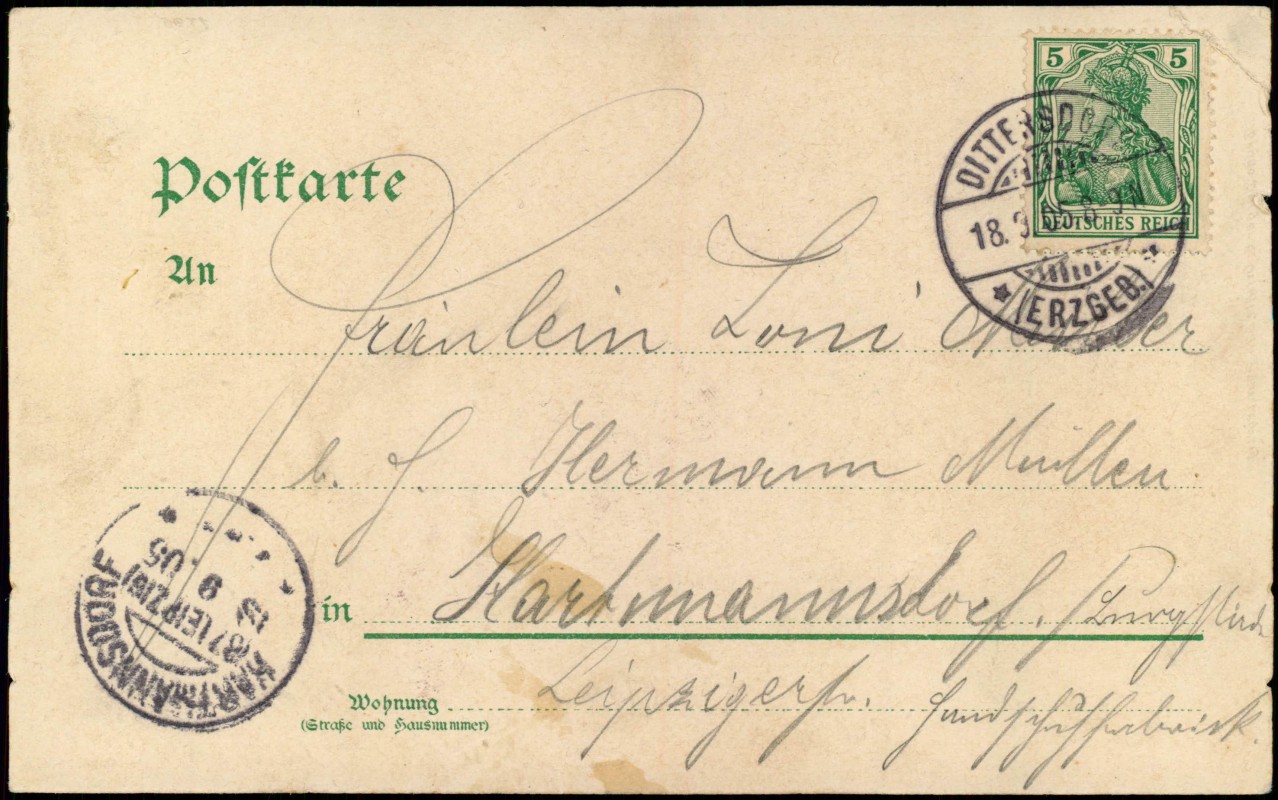 5 5
DEUTSCHES REICH
DITTERSDORF
18. 9. 05 8-9N
(ERZGEB.)
Postkarte
An
Fräulein Loni
b. H. Hermann Müller
in Hartmannsdorf. /Burgstädt
Wohnung Leipzigerstr. Handschuhfabrik.
(Straße und Hausnummer)
HARTMANNSDORF
9 05